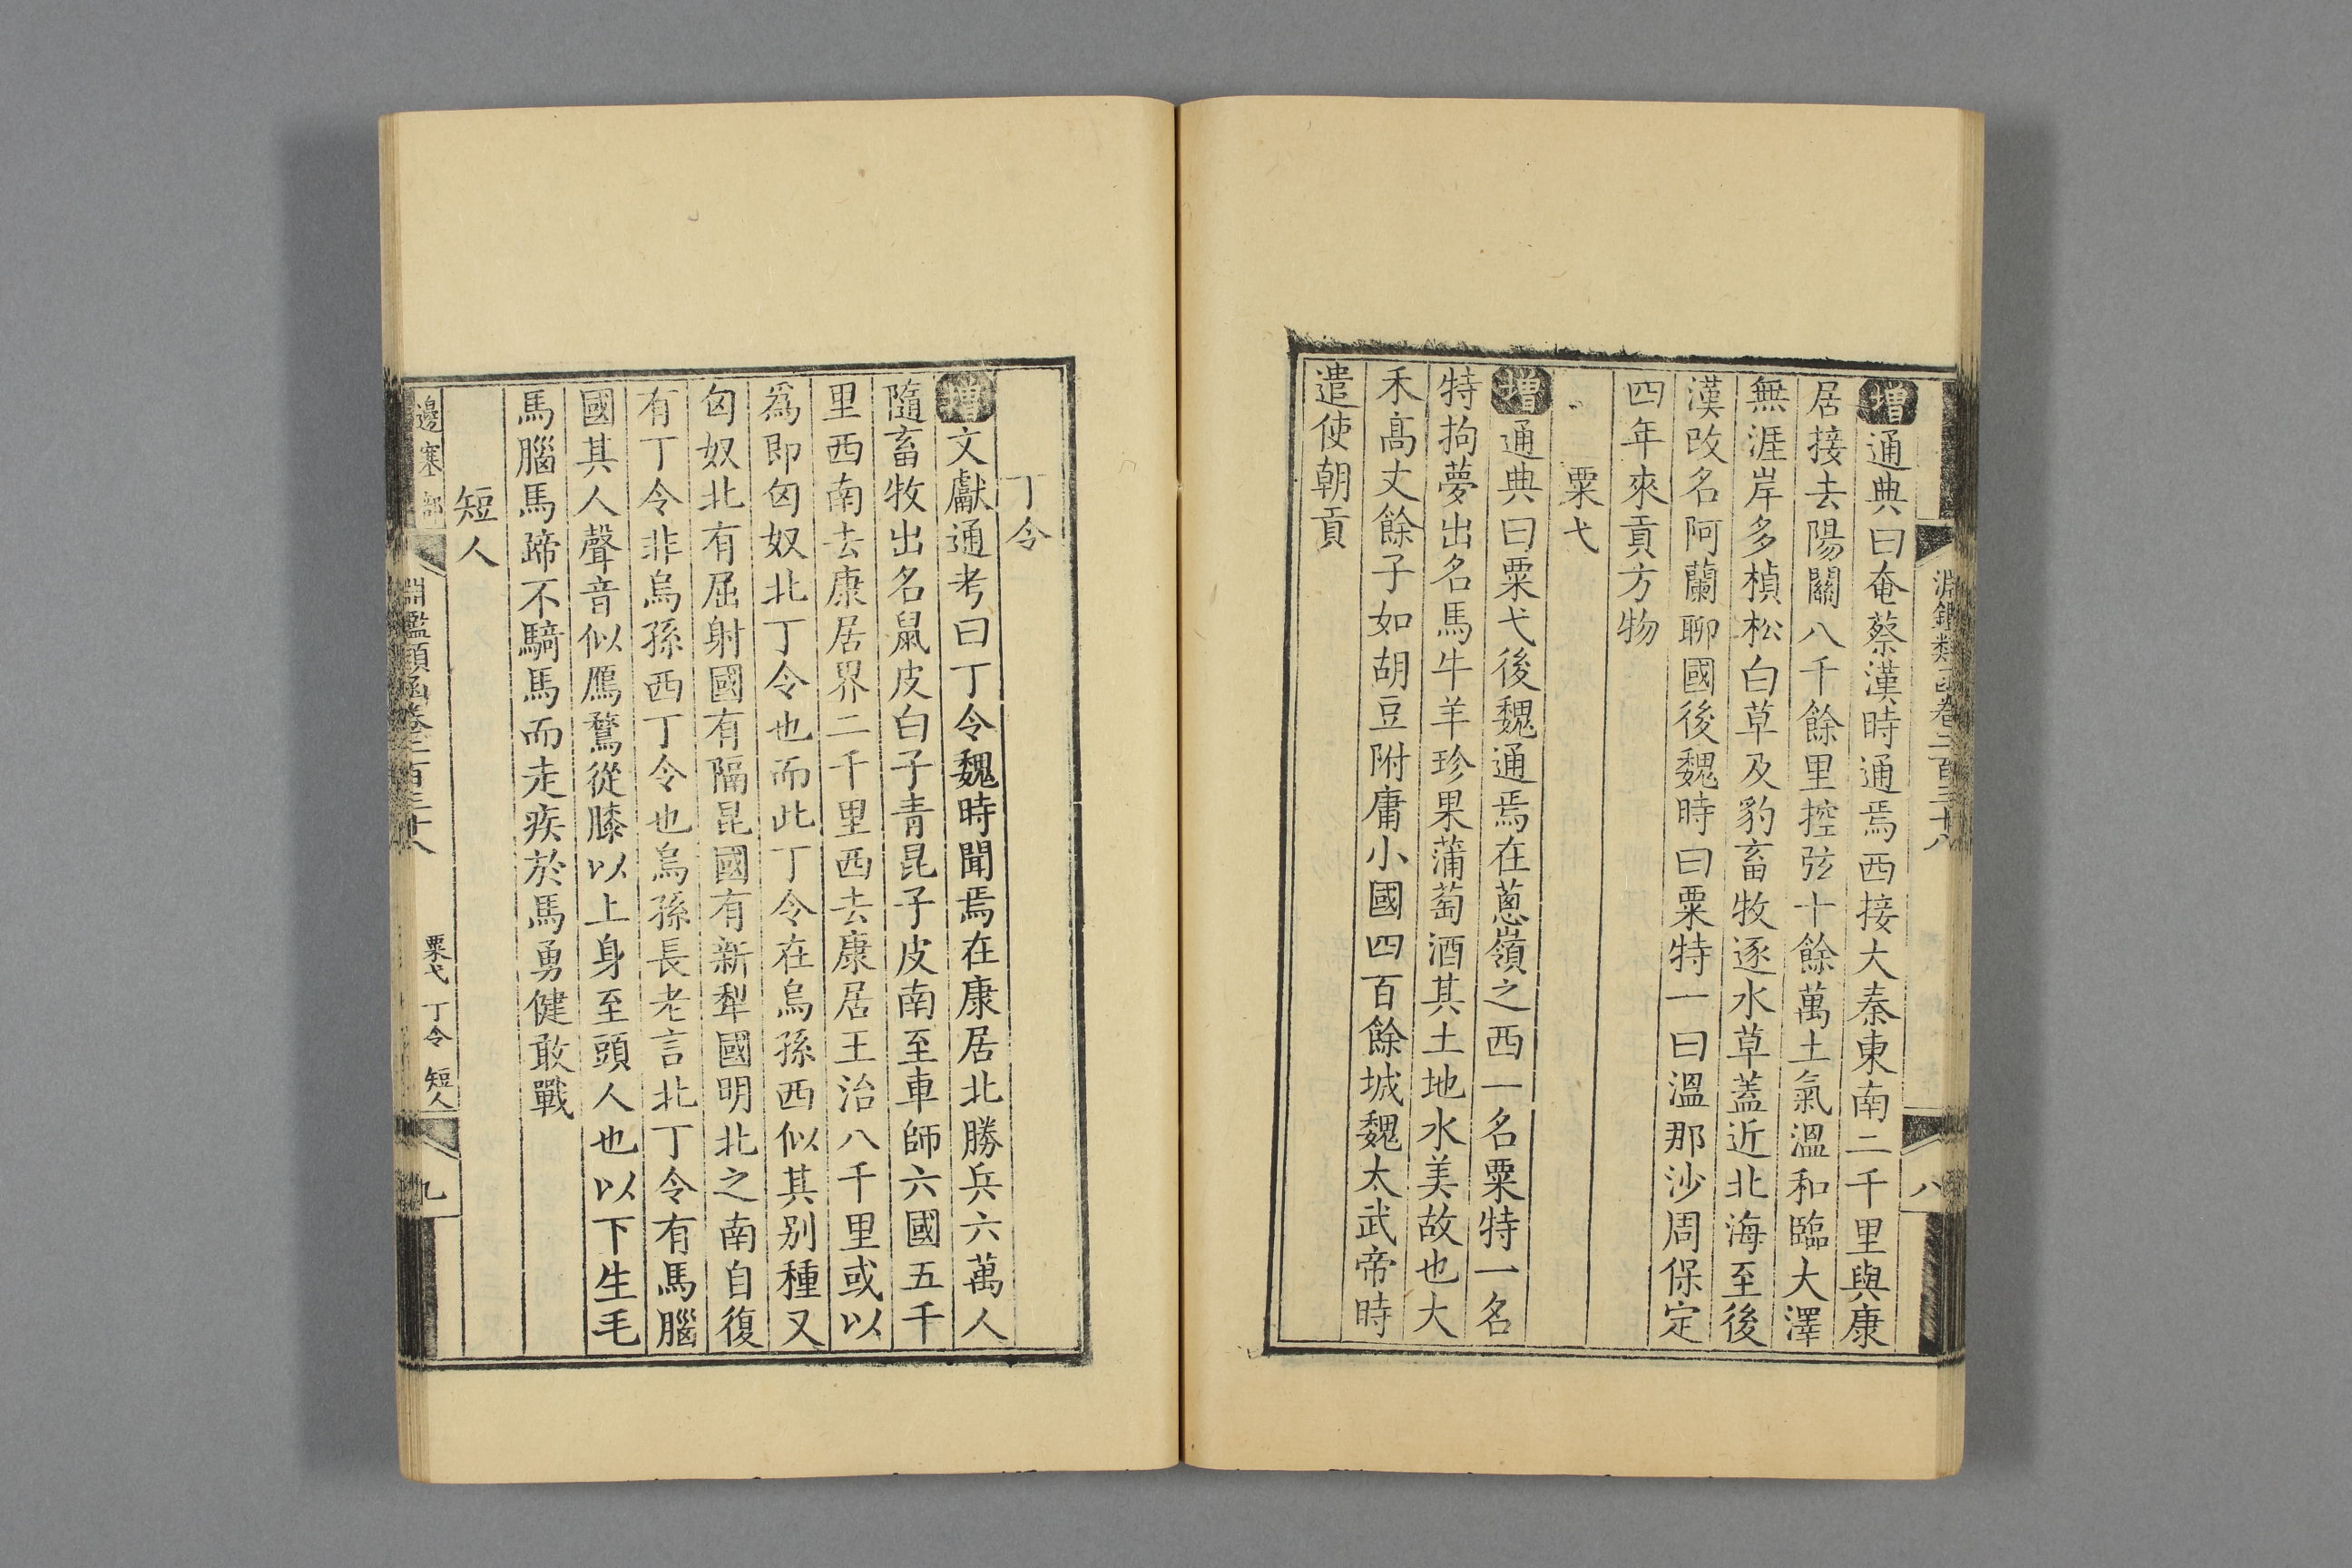 淵鑑類函卷二百三十八
八
增通典曰奄蔡漢時通焉西接大秦東南二千里與康
居接去陽關八千餘里控弦十餘萬土氣溫和臨大澤
無涯岸多楨松白草及豹畜牧逐水草蓋近北海至後
漢改名阿蘭聊國後魏時曰粟特一曰溫那沙周保定
四年來貢方物
粟弋
增通典曰粟弋後魏通焉在蔥嶺之西一名粟特一名
特拘夢出名馬牛羊珍果蒲萄酒其土地水美故也大
禾高丈餘子如胡豆附庸小國四百餘城魏太武帝時
遣使朝貢
丁令
增文獻通考曰丁令魏時聞焉在康居北勝兵六萬人
隨畜牧出名鼠皮白子青昆子皮南至車師六國五千
里西南去康居界二千里西去康居王治八千里或以
爲即匈奴北丁令也而此丁令在烏孫西似其别種又
匈奴北有屈射國有隔昆國有新犁國明北之南自復
有丁令非烏孫西丁令也烏孫長老言北丁令有馬腦
國其人聲音似鴈鶩從膝以上身至頭人也以下生毛
馬腦馬蹄不騎馬而走疾於馬勇健敢戰
短人
邊塞部
淵鑑類函卷二百三十八
粟弋 丁令 短人
九